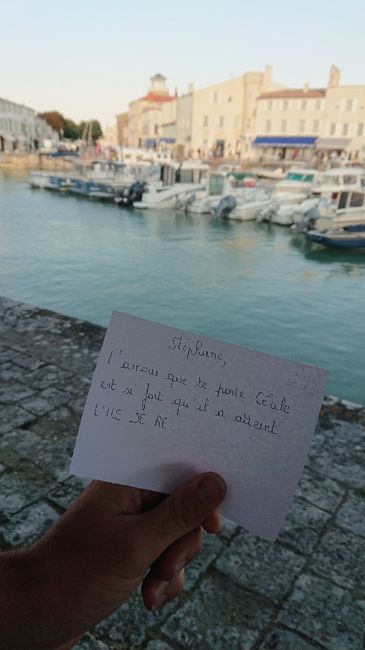 Stéphane,
l'amour que te porte Cécile
est si fort qu'il a atteint
l'ILE DE RE